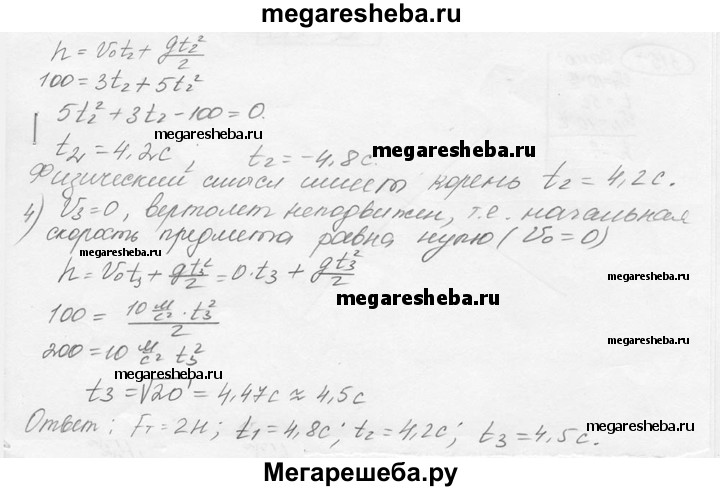 megaresheba.ru
h = V₀t₂ + gt₂²/2
100 = 3t₂ + 5t₂²
5t₂² + 3t₂ - 100 = 0.
megaresheba.ru
t₂₁ = 4,2 c ; t₂ = -4,8 c. megaresheba.ru
Физический смысл имеет корень t₂ = 4,2 c.
4) V₃ = 0, вертолет неподвижен, т.е. начальная
скорость предмета равна нулю (V₀ = 0)
h = V₀t₃ + gt₃²/2 = 0·t₃ + gt₃²/2
megaresheba.ru
100 = 10 м/c² · t₃² / 2
200 = 10 м/c² t₃²
t₃ = √20 = 4,47 c ≈ 4,5 c
megaresheba.ru
Ответ: Fт = 2H; t₁ = 4,8 c; t₂ = 4,2 c; t₃ = 4,5 c.
megaresheba.ru
Мегарешеба.ру